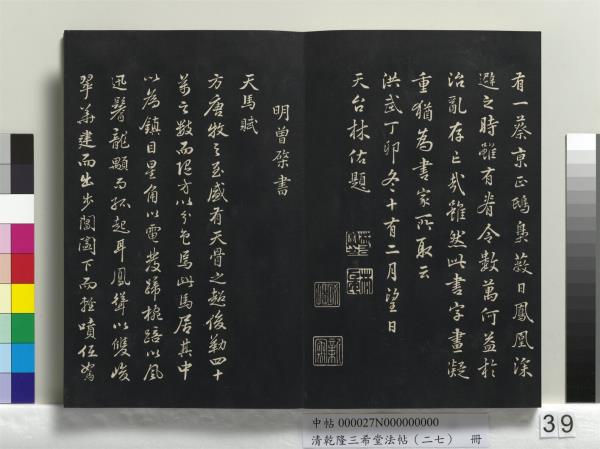 有一蔡京正鴟梟蔽日鳳凰深
避之時雖有眷令數萬何益於
治亂存亡哉雖然此書字畫凝
重猶為書家所取云
洪武丁卯冬十有二月望日
天台林佑題
明曾棨書
天馬賦
方唐牧之至盛有天骨之超俊勒四十
萬之數而隨方以分色焉此馬居其中
以為鎮目星角以電發蹄椀踣以風
迅鬐龍顒而孤起耳鳳聳以雙峻
翠華建而出步閶闔下而輕噴低駑
中帖 000027N000000000
清乾隆三希堂法帖(二七) 冊
39